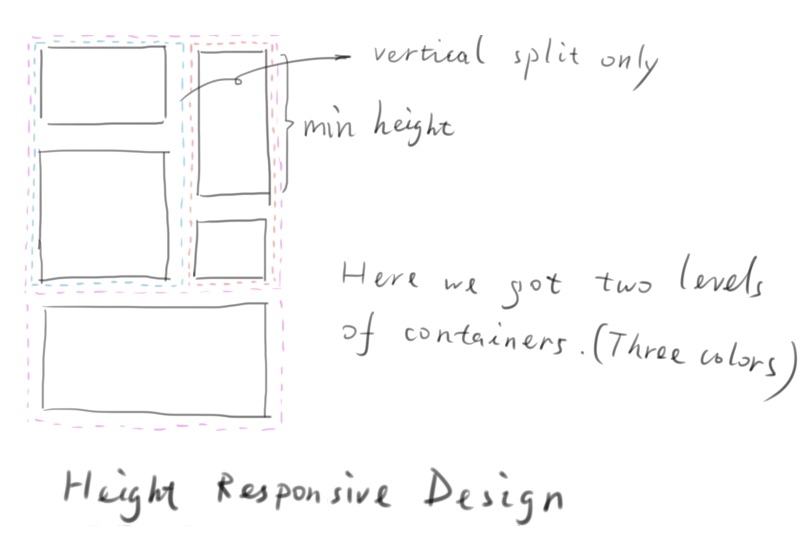 vertical split only
min height
Here we got two levels
of containers. (Three colors)
Height Responsive Design